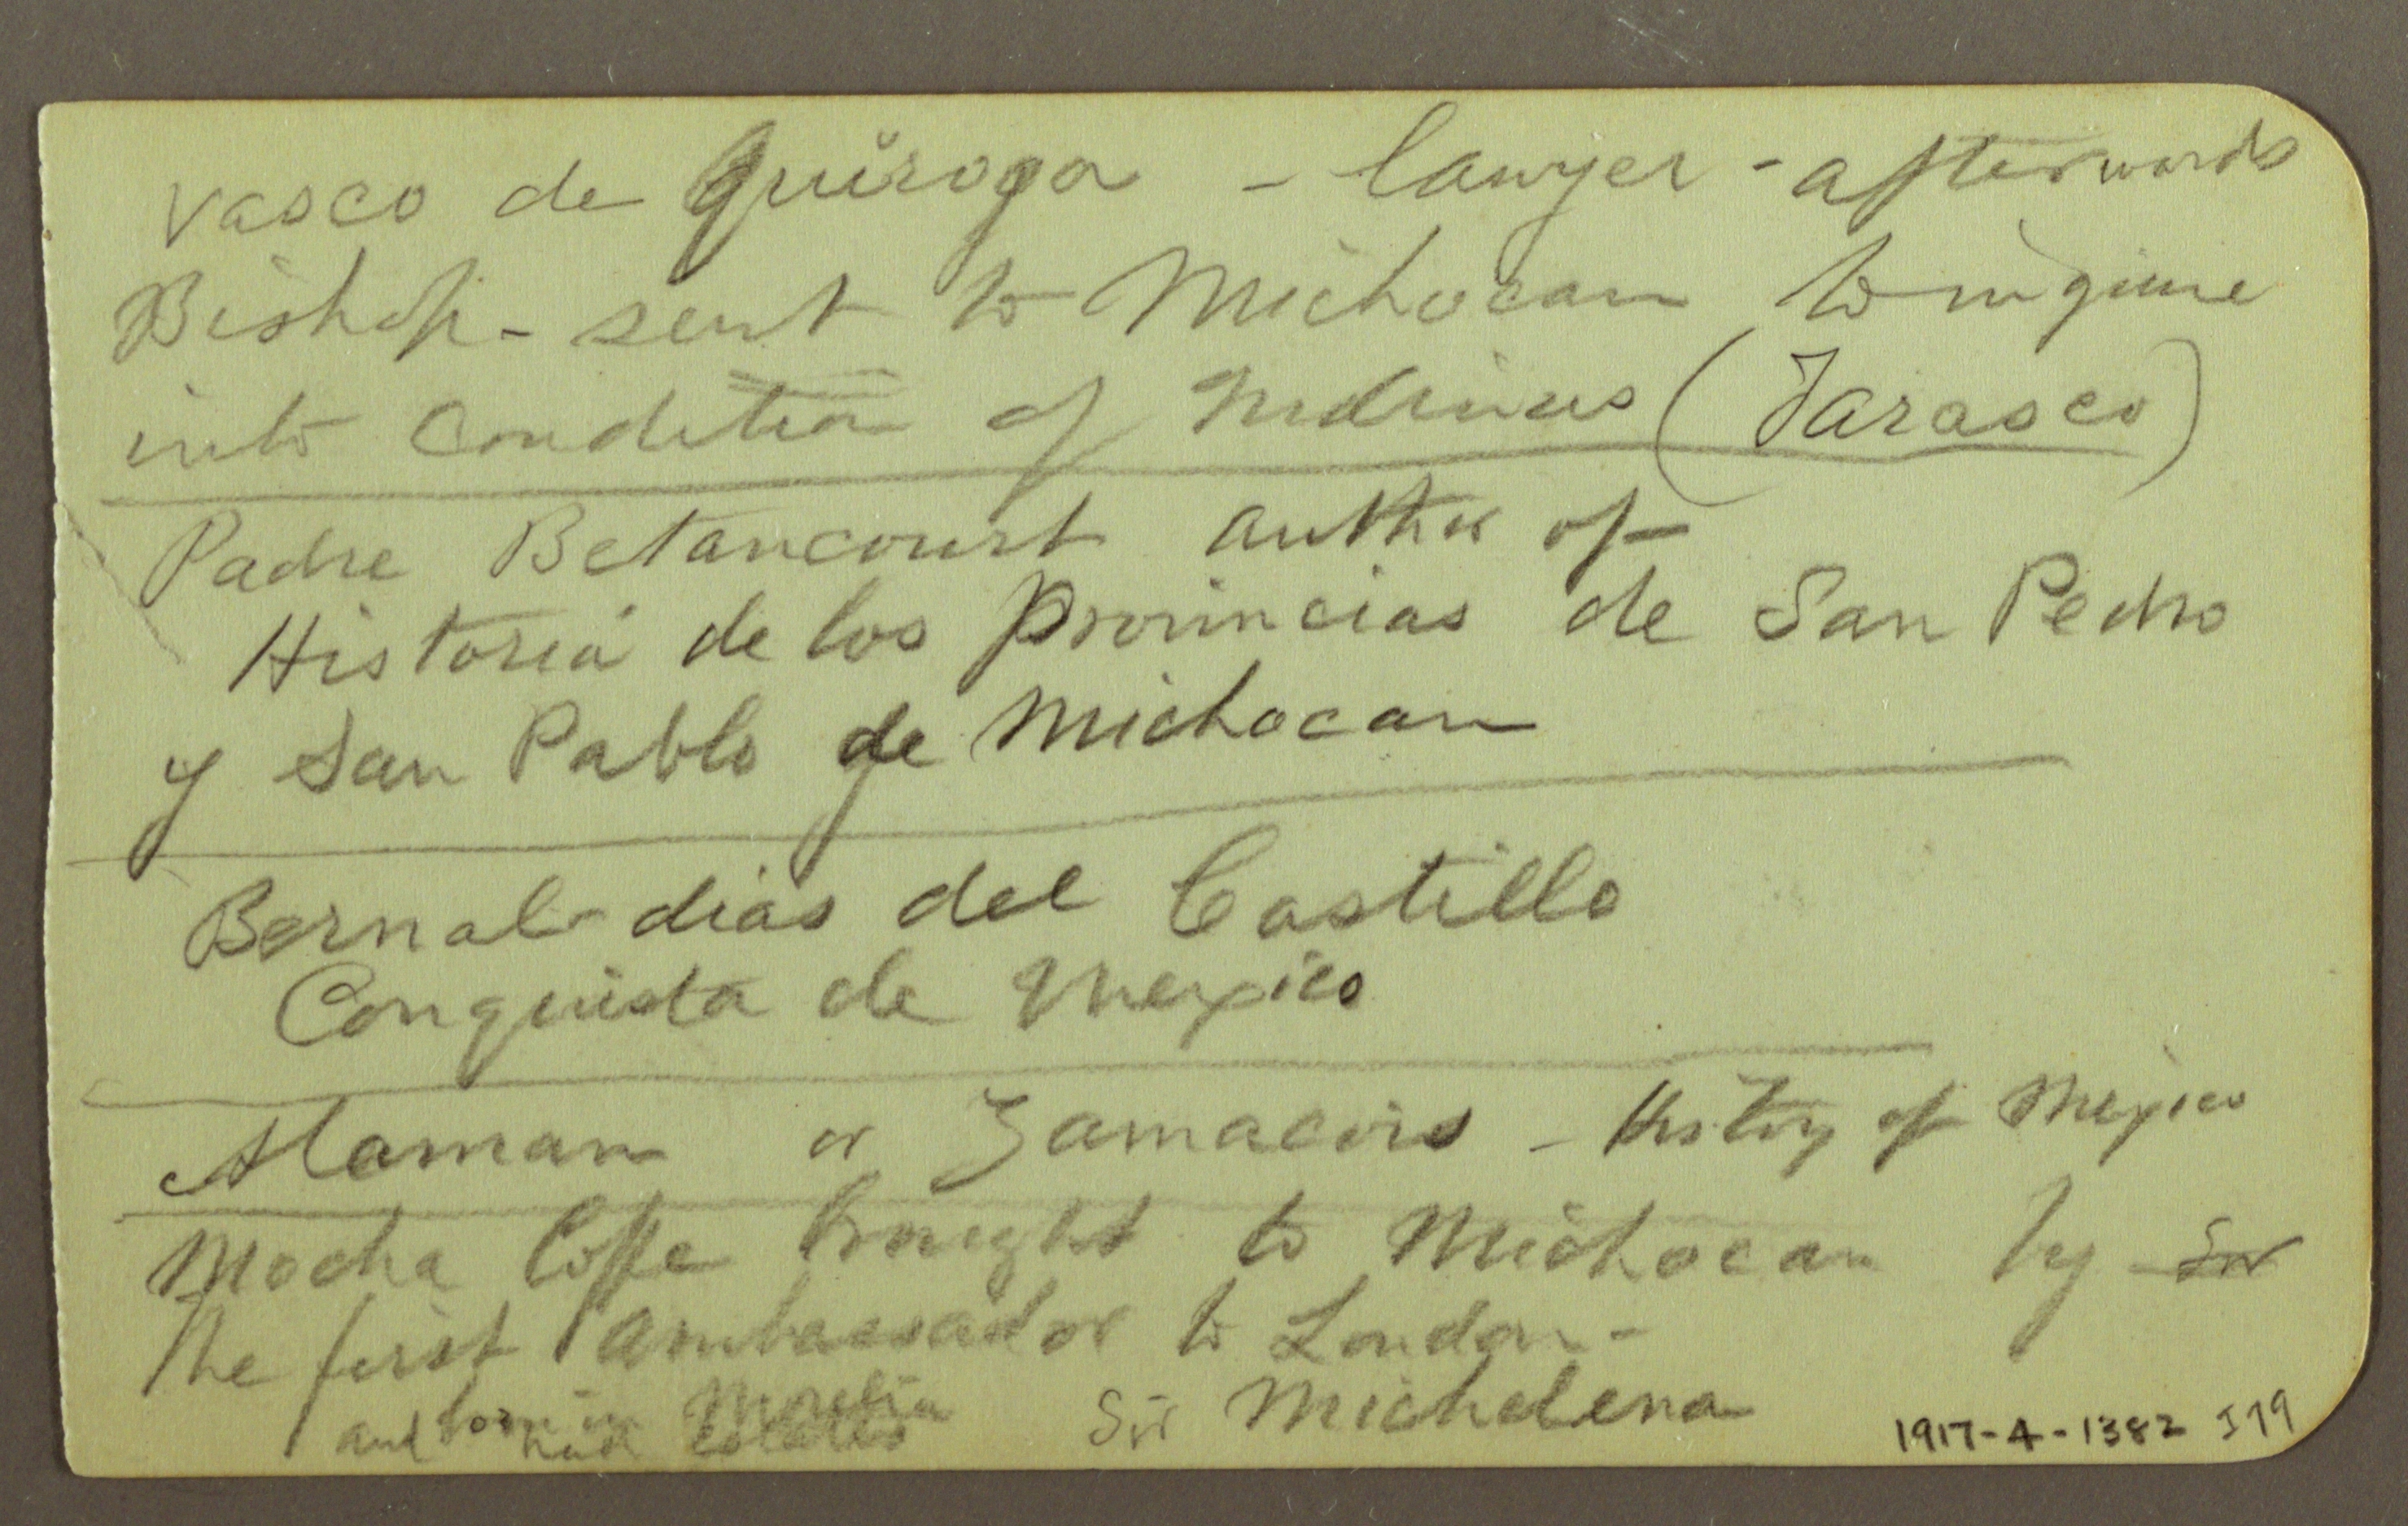 Vasco de Quiroga - lawyer - afterwards
Bishop - sent to Michocan to inquire
into condition of Indians (Tarasco)
Padre Betancourt author of
Historia de los provincias de San Pedro
y San Pablo de Michocan
Bernal dias del Castillo
Conquista de Mexico
Alaman or Zamacois - History of Mexico
Mocha Coffe brought to Michocan by Sir
the first ambassador to London -
born in Morelia
and had estates Sir Michelena
1917-4-1382 I79